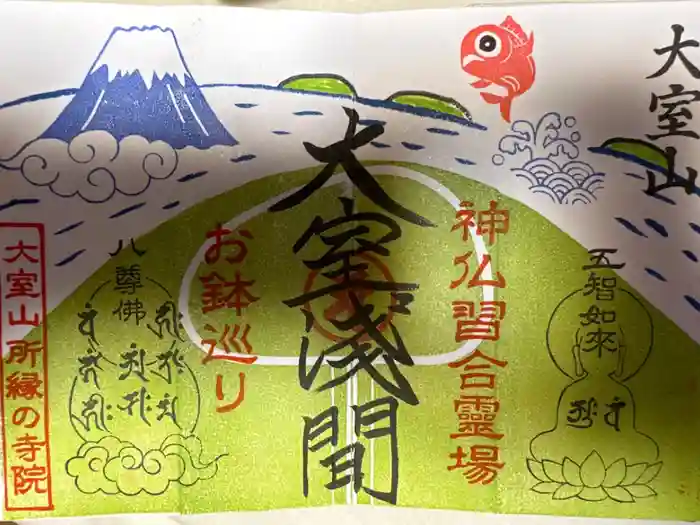 大室山
神仏習合靈場
五智如來
大室浅間
お鉢巡り
八尊佛
大室山所縁の寺院